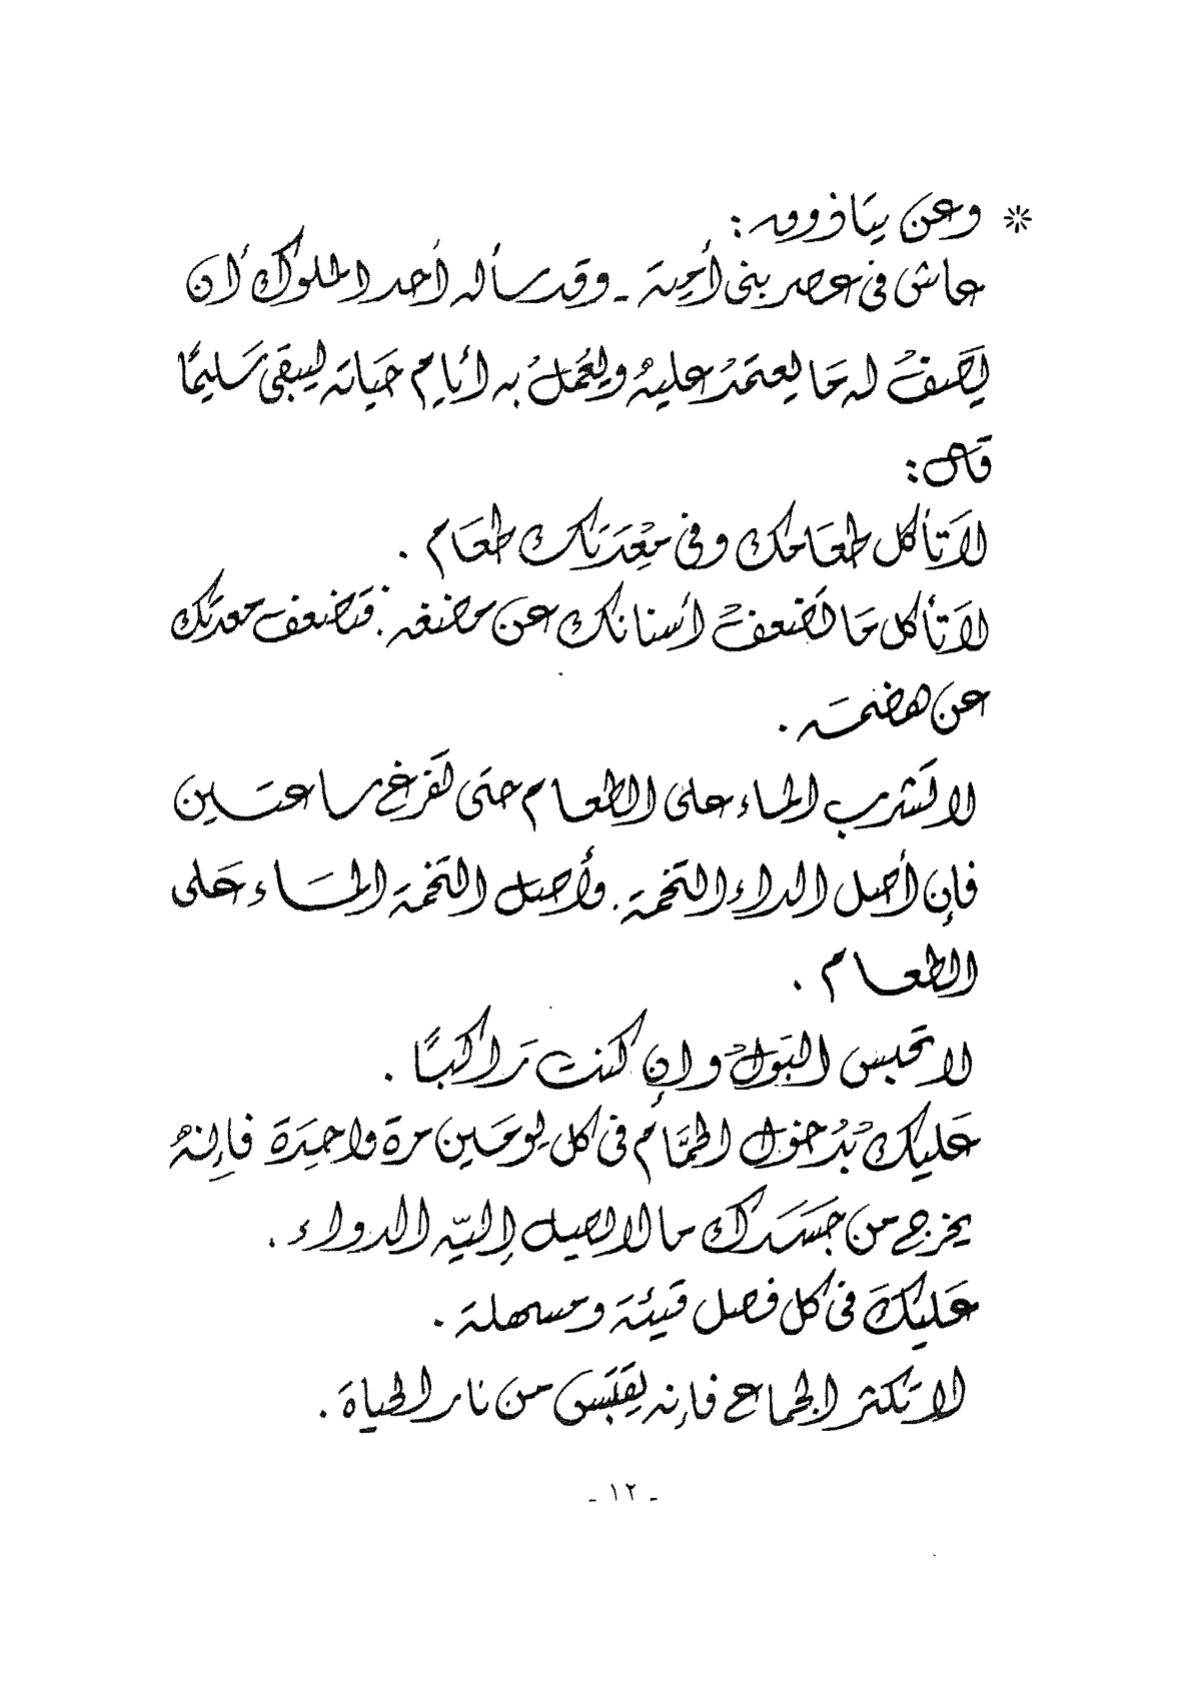 * وعن يتاذوق :
عاش في عصر بني أمية - وقد سأله أحد الملوك أن
يَصفْ له مَا يعتمدْ عليهْ ويعْملُ به أيام حَياته ليبقى سَليمًا
قال :
لا تأكل طعَامك وفي مِعْدَتك طعَام .
لا تأكل مَا تَضعفْ أسنانك عن مضغه . فتضعف معدتك
عن هضمه .
لا تشرب الماء على الطعام حتى تفرغ ساعتين
فإن أصل الداء التخمة . وأصل التخمة الماء على
الطعام .
لا تحبس البَولْ وإن كنت رَاكبًا .
عَليكْ بْدُخول الحمَّام في كل يومَين مرة واحِدَة فإنهُ
يخرج من جَسَدك ما لا يصل إليّه الدواء .
عَليكَ في كل فصل قيئة ومسهلة .
لا تكثر الجماع فإنه يقتبَس من نار الحياة .
- ١٢ -